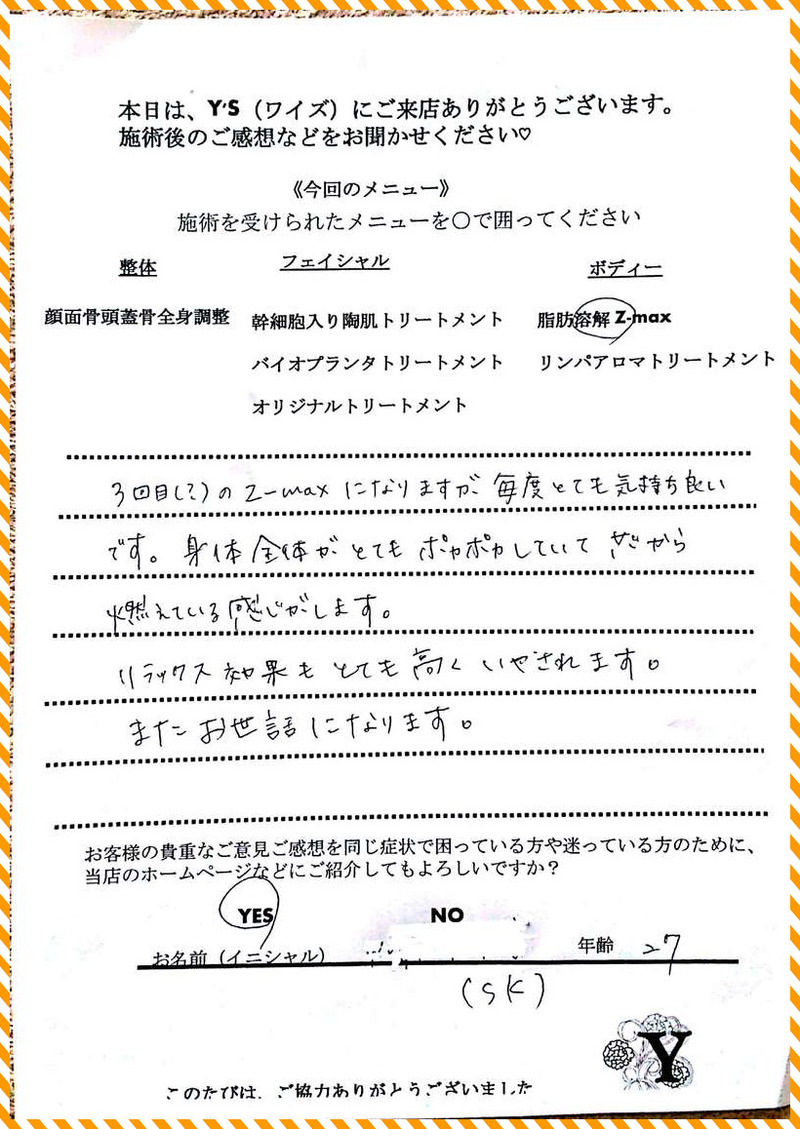 本日は、Y'S（ワイズ）にご来店ありがとうございます。
施術後のご感想などをお聞かせください♡
《今回のメニュー》
施術を受けられたメニューを〇で囲ってください
整体 フェイシャル ボディー
顔面骨頭蓋骨全身調整 幹細胞入り陶肌トリートメント 脂肪溶解 Z-max
バイオプランタトリートメント リンパアロマトリートメント
オリジナルトリートメント
3回目(?)のZ-maxになりますが、毎度とても気持ち良い
です。身体全体がとてもポカポカしていて から
燃えている感じがします。
リラックス効果もとても高くいやされます。
またお世話になります。
お客様の貴重なご意見ご感想を同じ症状で困っている方や迷っている方のために、
当店のホームページなどにご紹介してもよろしいですか？
YES NO
お名前（イニシャル） 年齢 27
(SK)
Y
このたびは、ご協力ありがとうございました